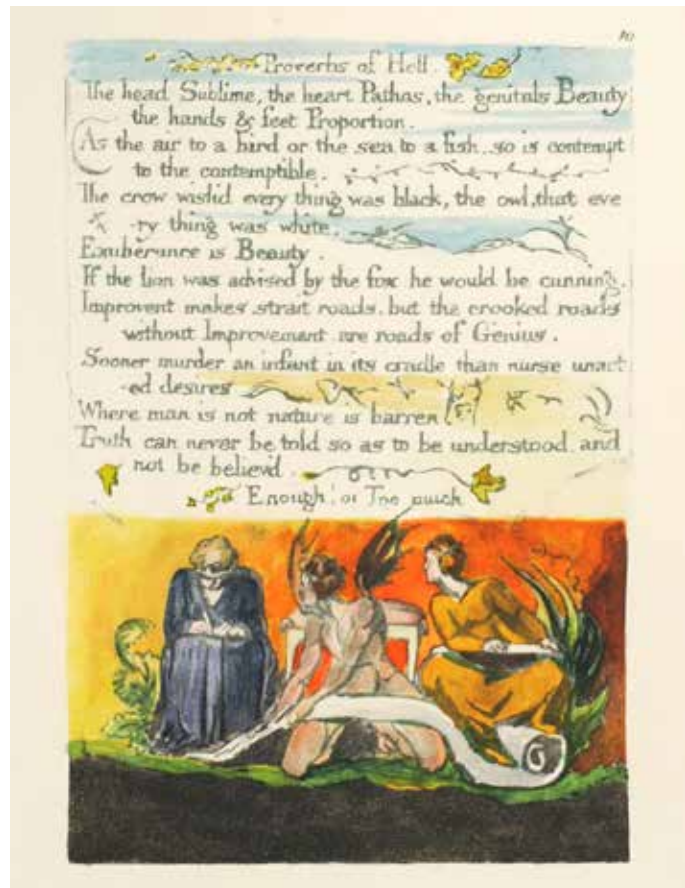 10
Proverbs of Hell
The head Sublime, the heart Pathos, the genitals Beauty
the hands & feet Proportion.
As the air to a bird or the sea to a fish, so is contempt
to the contemptible.
The crow wish'd every thing was black, the owl, that eve
-ry thing was white.
Exuberance is Beauty.
If the lion was advised by the fox he would be cunning.
Improvent makes strait roads, but the crooked roads
without Improvement, are roads of Genius.
Sooner murder an infant in its cradle than nurse unact
-ed desires
Where man is not nature is barren
Truth can never be told so as to be understood, and
not be believ'd.
Enough! or Too much